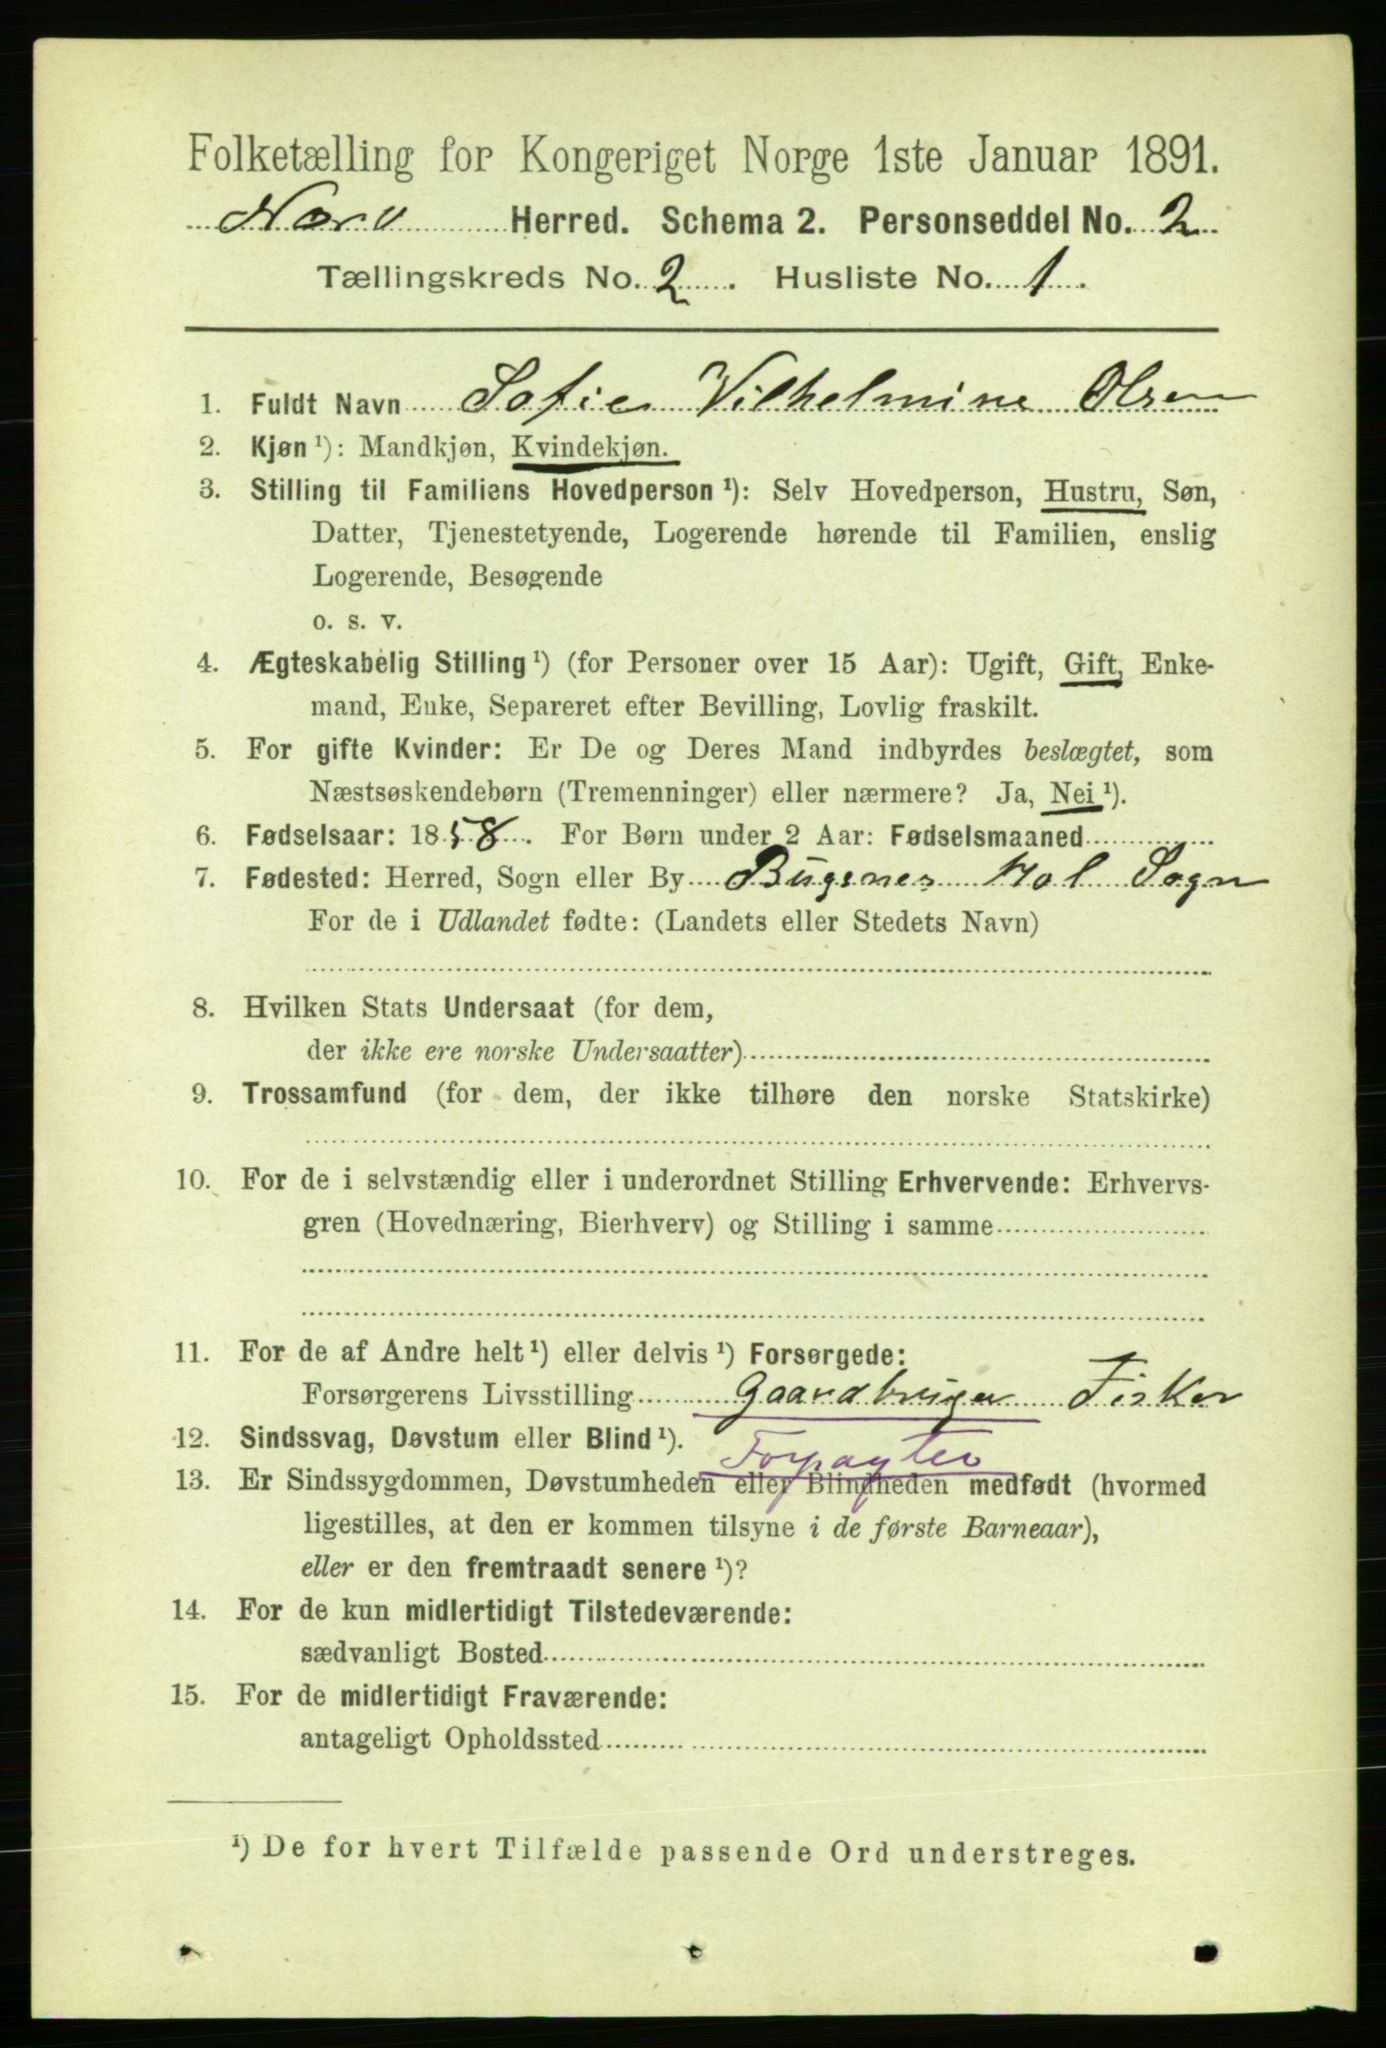 Folketælling for Kongeriget Norge 1ste Januar 1891.
Herred. Schema 2. Personseddel No. 2
Tællingskreds No. 2. Husliste No. 1.
1. Fuldt Navn Sofie Vilhelmine Olsen
2. Kjøn ¹): Mandkjøn, Kvindekjøn.
3. Stilling til Familiens Hovedperson ¹): Selv Hovedperson, Hustru, Søn,
Datter, Tjenestetyende, Logerende hørende til Familien, enslig
Logerende, Besøgende
o. s. v.
4. Ægteskabelig Stilling ¹) (for Personer over 15 Aar): Ugift, Gift, Enke-
mand, Enke, Separeret efter Bevilling, Lovlig fraskilt.
5. For gifte Kvinder: Er De og Deres Mand indbyrdes beslægtet, som
Næstsøskendebørn (Tremenninger) eller nærmere? Ja, Nei ¹).
6. Fødselsaar: 1858. For Børn under 2 Aar: Fødselsmaaned
7. Fødested: Herred, Sogn eller By Bugenes Hol Sogn
For de i Udlandet fødte: (Landets eller Stedets Navn)
8. Hvilken Stats Undersaat (for dem,
der ikke ere norske Undersaatter)
9. Trossamfund (for dem, der ikke tilhøre den norske Statskirke)
10. For de i selvstændig eller i underordnet Stilling Erhvervende: Erhvervs-
gren (Hovednæring, Bierhverv) og Stilling i samme
11. For de af Andre helt ¹) eller delvis ¹) Forsørgede:
Forsørgerens Livsstilling Gaardbruger Fisker
12. Sindssvag, Døvstum eller Blind ¹). Forpagter
13. Er Sindssygdommen, Døvstumheden eller Blindheden medfødt (hvormed
ligestilles, at den er kommen tilsyne i de første Barneaar),
eller er den fremtraadt senere ¹)?
14. For de kun midlertidigt Tilstedeværende:
sædvanligt Bosted
15. For de midlertidigt Fraværende:
antageligt Opholdssted
¹) De for hvert Tilfælde passende Ord understreges.